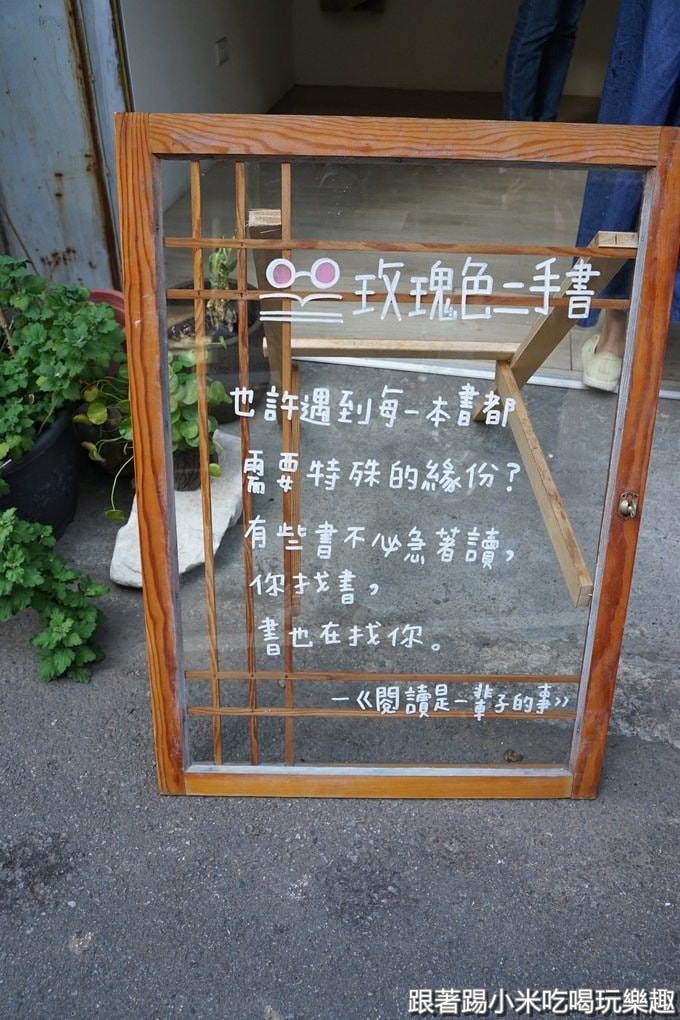 玫瑰色二手書
也許遇到每一本書都
需要特殊的緣份?
有些書不必急著讀,
你找書,
書也在找你。
—《閱讀是一輩子的事》
跟著踢小米吃喝玩樂趣